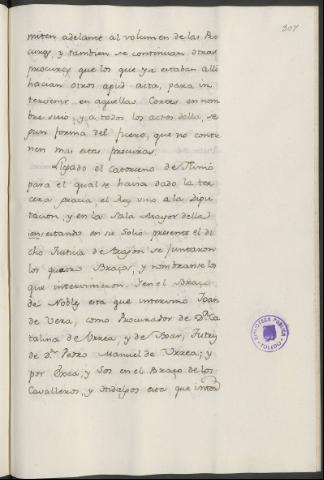 307
miten adelante al volumen de las Pro
curas, y tambien se continuan otras
procuras que los que ya estaban alli
hacian otros apud acta, para in
tervenir en aquellas Cortes en nom
bre suio, y a todos los actos della, se
gun forma del fuero, que no contie
nen mas estas procuras.
Llegado el Catorceno de Junio
para el qual se havia dado la ter
cera gracia, el Rey vino a la Dipu
tacion, y en la Sala Mayor della
estando en su Solio presente el di
cho Justicia de Aragon se juntaron
los quatro Brazos, y nombranse los
que intervinieron. Y en el Brazo
de Nobles esta que intervino Joan
de Vera, como Procurador de D.ª Ca
talina de Urrea, y de Joan, Tutriz
de D.n Pedro Manuel de Urrea; y
por Exea, y Sos en el Brazo de los
Cavalleros, y Hidalgos esta que interv
BIBLIOTECA PUBLICA
TOLEDO